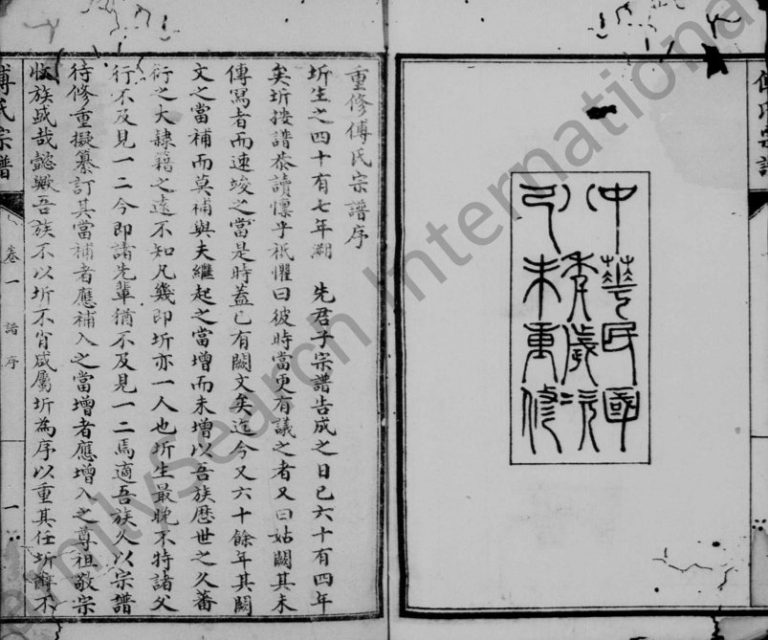 傅氏宗譜
中華民國
八年歲次
己未重修
重修傅氏宗譜序
圻生之四十有七年溯　先君子宗譜告成之日已六十有四年
矣圻按譜恭讀懍乎祇懼曰彼時當更有議之者又曰姑闕其未
傳寫者而速竣之當是時蓋已有闕文矣迄今又六十餘年其闕
文之當補而莫補與夫繼起之當增而未增以吾族歷世之久蕃
衍之大隷籍之遠不知凡幾即圻亦一人也圻生最晚不特諸父
行不及見一二今即諸先輩猶不及見一二焉適吾族久以宗譜
待修重擬纂訂其當補者應補入之當增者應增入之尊祖敬宗
收族盛哉懿歟吾族不以圻不肖咸屬圻為序以重其任圻辭不
傅氏宗譜 卷一 譜序 一
FamilySearch International